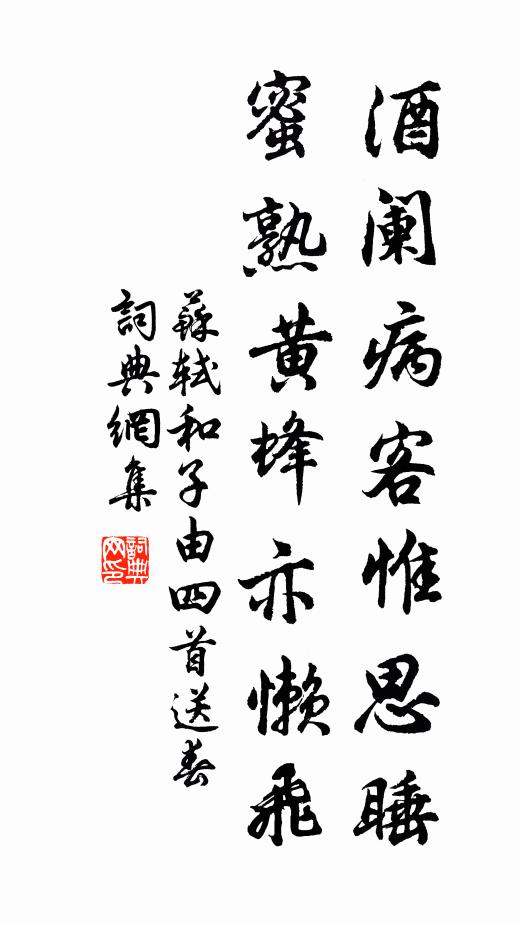 酒阑病客惟思睡
蜜熟黄蜂亦懒飛
蘇軾和子由四首送春
詞典網集
詞典网